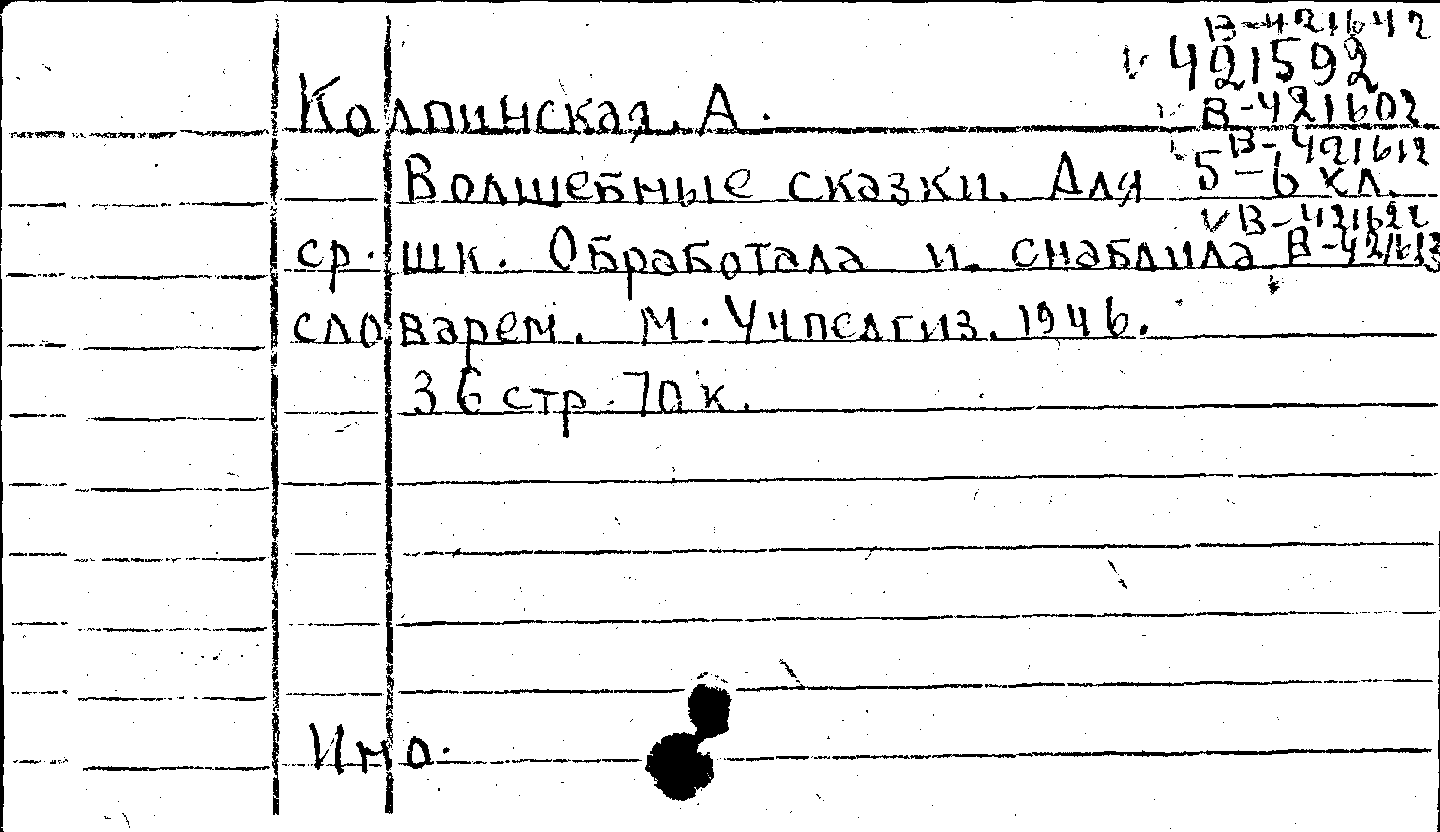 В-421642
v 421592
Колпинская, А.
В-421602
В-421612
Волшебные сказки. Для 5-6 кл.
v В-421622
ср. шк. Обработала и снабдила В-421613
словарем. М. Учпедгиз. 1946.
36 стр. 70 к.
Ино.